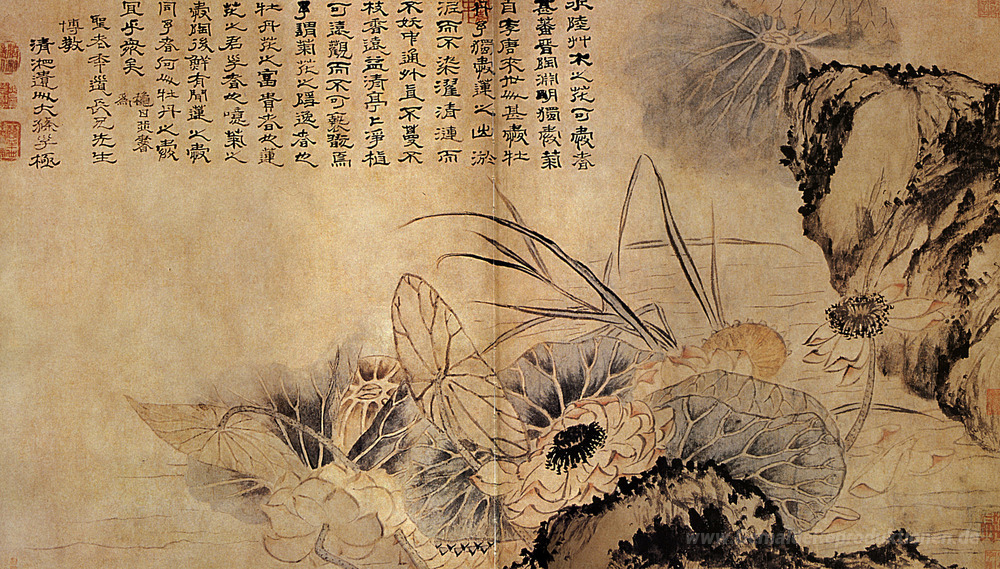 水陸艸木之花可愛者
甚蕃晉陶淵明獨愛菊
自李唐來世人甚愛牡
丹予獨愛蓮之出淤
泥而不染濯清漣而
不妖中通外直不蔓不
枝香遠益清亭亭淨植
可遠觀而不可褻翫焉
予謂菊花之隱逸者也
牡丹花之富貴者也蓮
花之君子者也噫菊之
愛陶後鮮有聞蓮之愛
同予者何人牡丹之愛
宜乎衆矣
為
聖老李道長兄先生
博教
清湘遺人大滌子極